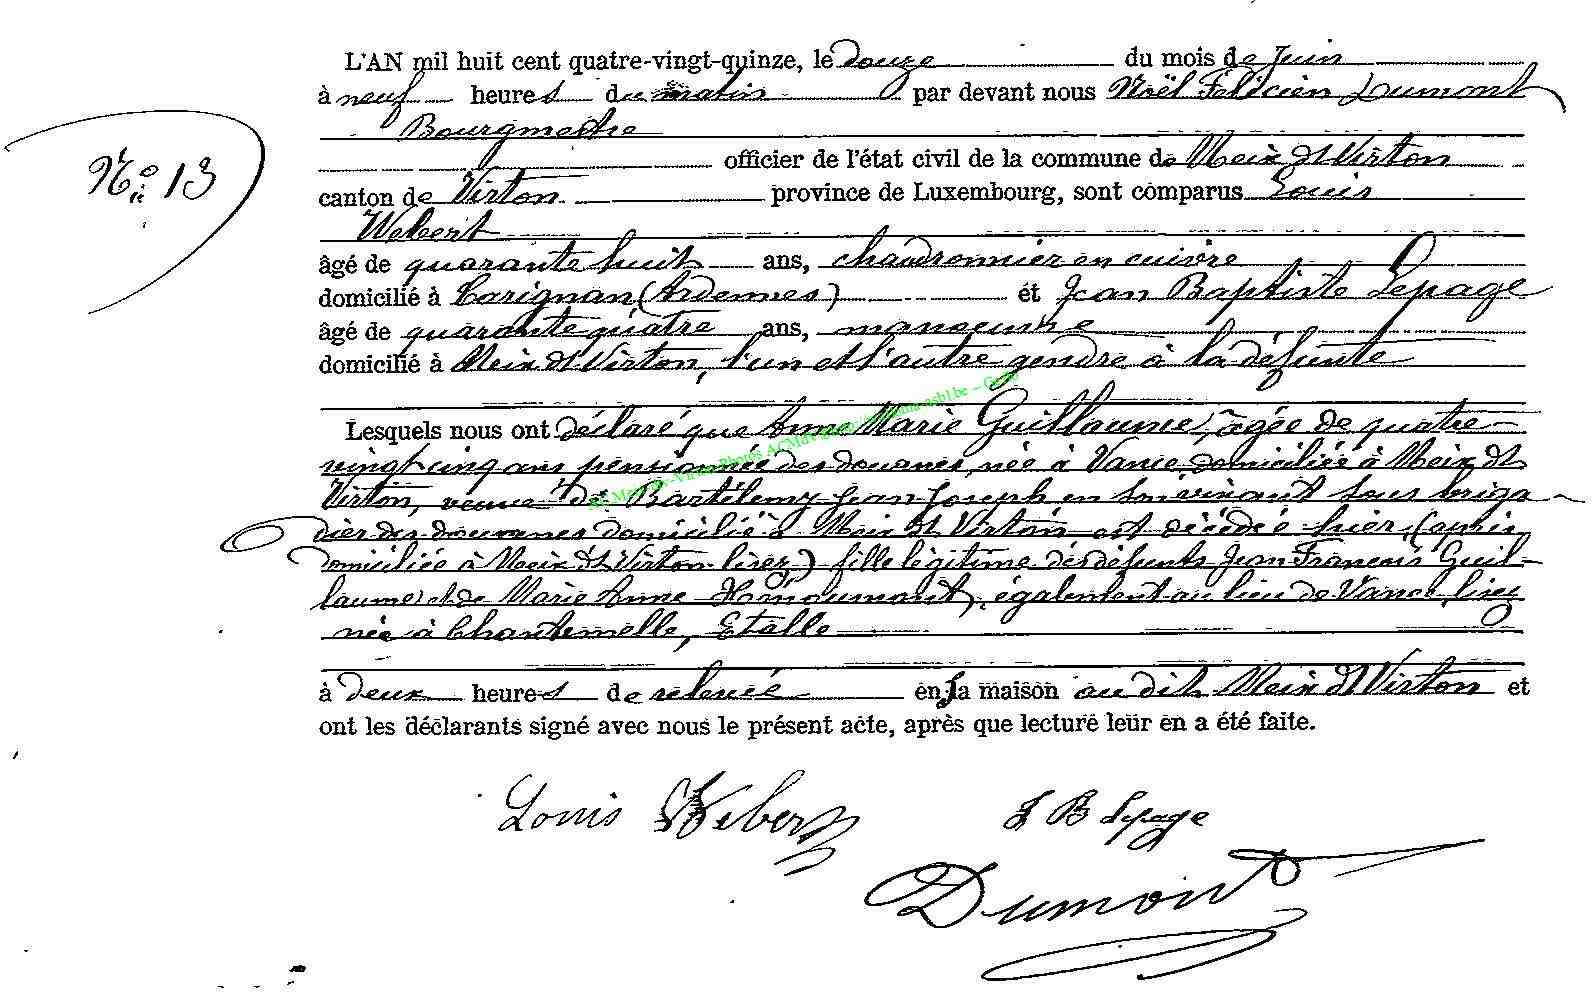 L'AN mil huit cent quatre-vingt-quinze, le douze du mois de Juin
à neuf heures du matin par devant nous Noël Félicien Dumont
Bourgmestre
N° 13
officier de l'état civil de la commune de Meix dt Virton
canton de Virton province de Luxembourg, sont comparus Louis
Webert
âgé de quarante huit ans, chaudronnier en cuivre
domicilié à Carignan (Ardennes) et Jean Baptiste Lepage
âgé de quarante quatre ans, manoeuvre
domicilié à Meix dt Virton, l'un et l'autre gendre à la défunte
Lesquels nous ont déclaré que Anne Marie Guillaume, âgée de quatre
vingt cinq ans pensionnée des douanes, née à Vance, domiciliée à Meix dt
Virton, veuve de Bartélemy Jean Joseph en son vivant sous briga
dier des douanes domicilié à Meix dt Virton est décédée hier, (après
domiciliée à Meix dt Virton lisez) fille légitime des défunts Jean François Guil-
laume et de Marie Anne, également au lieu de Vance, lisez
née à Chantemelle, Etalle
à deux heures de relevée en la maison au dit Meix dt Virton et
ont les déclarants signé avec nous le présent acte, après que lecture leur en a été faite.
Louis Webert J B Lepage
Dumont